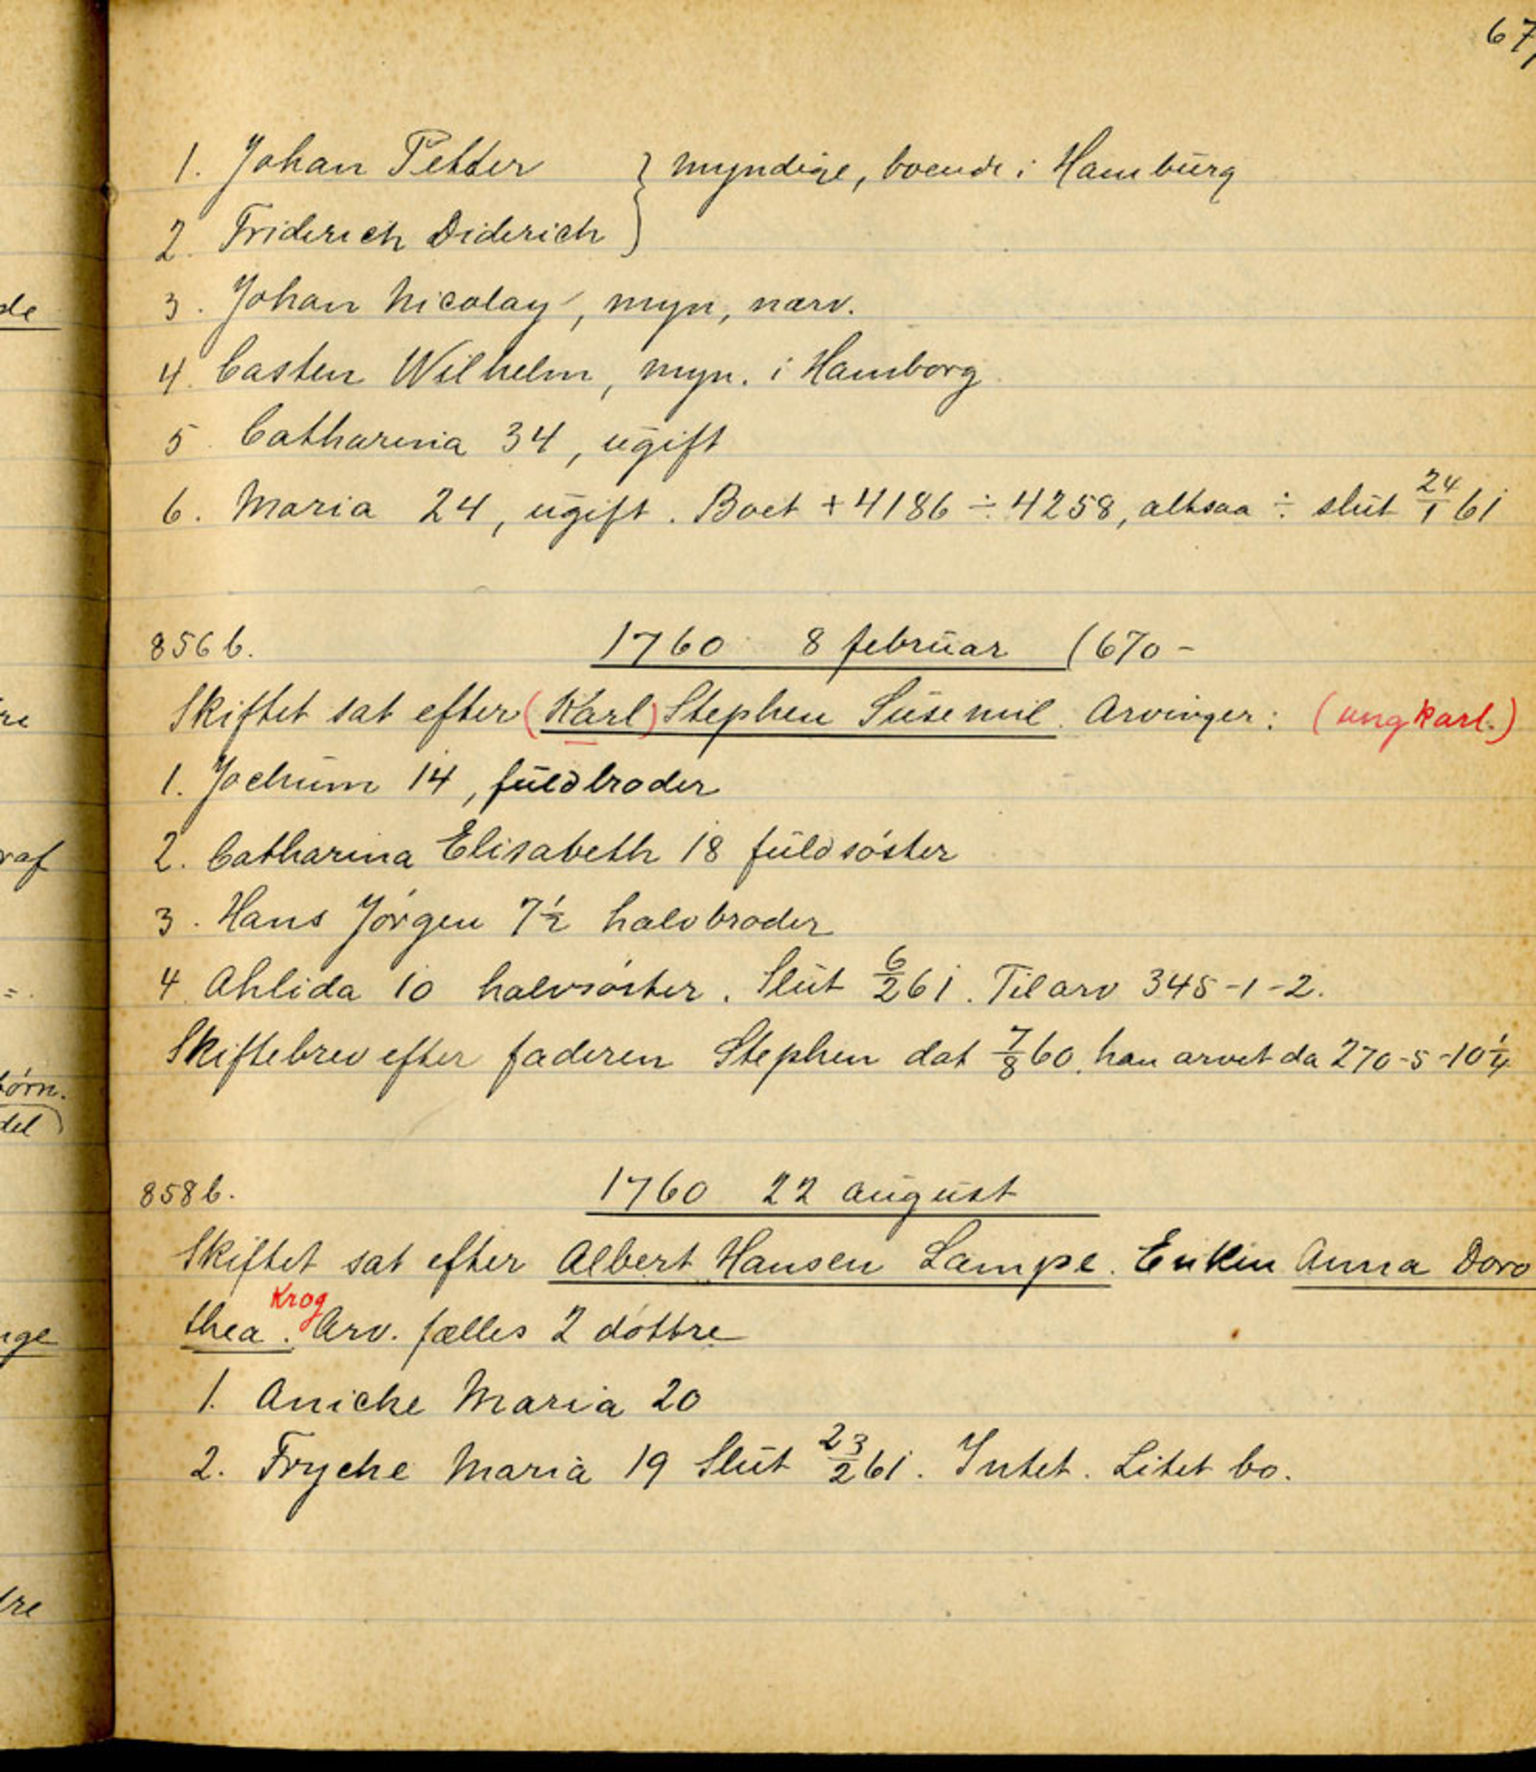 67
de
1. Johan Petter } myndige, boende i Hamburg
2. Friderich Diderich }
3. Johan Nicolay, myn, nærv.
4. Casten Wilhelm, myn. i Hamborg
5. Catharina 34, ugift
6. Maria 24, ugift. Boet + 4186 ÷ 4258, altsaa ÷ slut 24/1 61
856 b. 1760 8 februar (670 -
Skiftet sat efter (Karl) Stephen Susemil. Arvinger: (ungkarl.)
1. Jochum 14, fuldbroder
2. Catharina Elisabeth 18 fuldsøster
raf
3. Hans Jørgen 7 1/2 halvbroder
4. Ahlida 10 halvsøster. Slut 6/2 61. Til arv 345-1-2.
Skiftebrev efter faderen Stephen dat 7/8 60, han arvet da 270-5-10 1/4
børn.
del)
858 b. 1760 22 august
Skiftet sat efter Albert Hansen Lampe. Enken Anna Doro
Krog
thea. Arv. fælles 2 døttre
nge
1. Aniche Maria 20
2. Fryche Maria 19 Slut 23/2 61. Intet. Litet bo.
tre